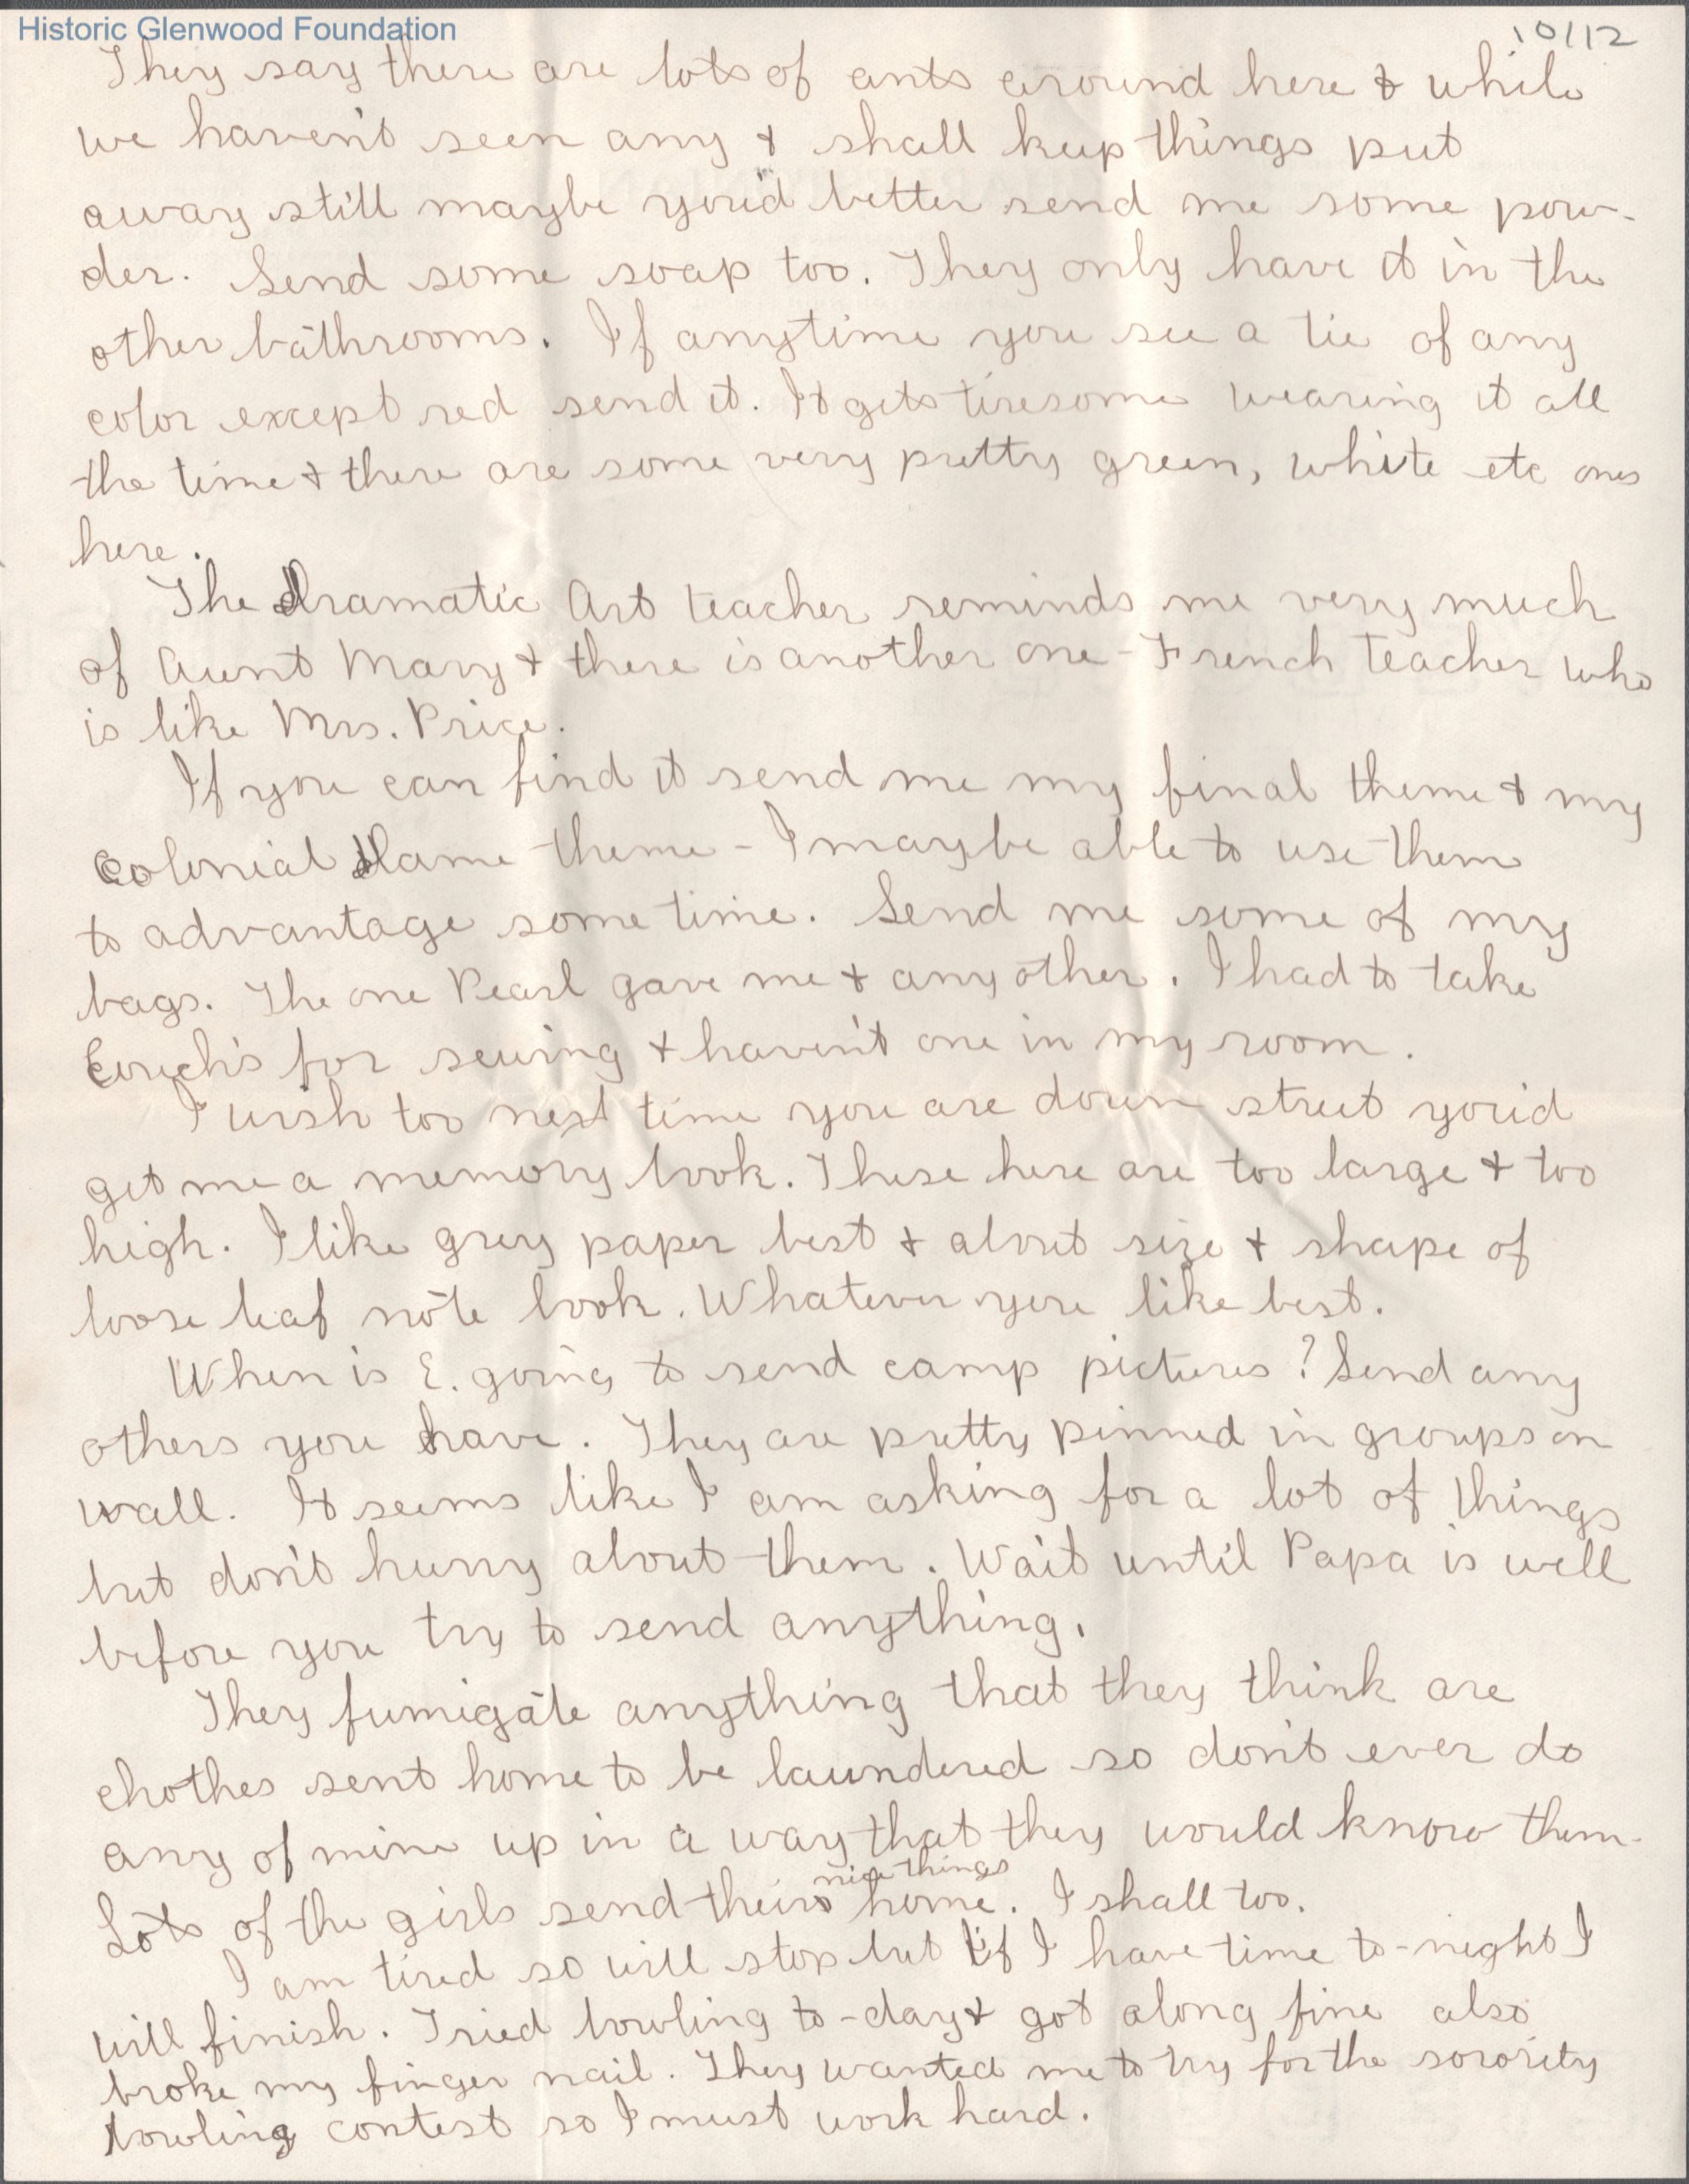 Historic Glenwood Foundation
10/12
They say there are lots of ants around here & while
we haven't seen any & shall keep things put
away still maybe you'd better send me some pow-
der. Send some soap too. They only have it in the
other bathrooms. If anytime you see a tie of any
color except red send it. It gets tiresome wearing it all
the time & there are some very pretty green, white etc ones
here.
The Dramatic Art teacher reminds me very much
of Aunt Mary & there is another one - French teacher who
is like Mrs. Price.
If you can find it send me my final theme & my
Colonial Dame theme - I maybe able to use them
to advantage some time. Send me some of my
bags. The one Pearl gave me & any other. I had to take
for sewing & haven't one in my room.
I wish too next time you are down street you'd
get me a memory book. These here are too large & too
high. I like grey paper best & about size & shape of
loose leaf note book. Whatever you like best.
When is E. going to send camp pictures? Send any
others you have. They are pretty pinned in groups on
wall. It seems like I am asking for a lot of things
but don't hurry about them. Wait until Papa is well
before you try to send anything.
They fumigate anything that they think are
chothes sent home to be laundered so don't ever do
any of mine up in a way that they would know them.
nice things
Lots of the girls send their home. I shall too.
I am tired so will stop but if I have time to-night I
will finish. Tried bowling to-day & got along fine also
broke my finger nail. They wanted me to try for the sorority
bowling contest so I must work hard.